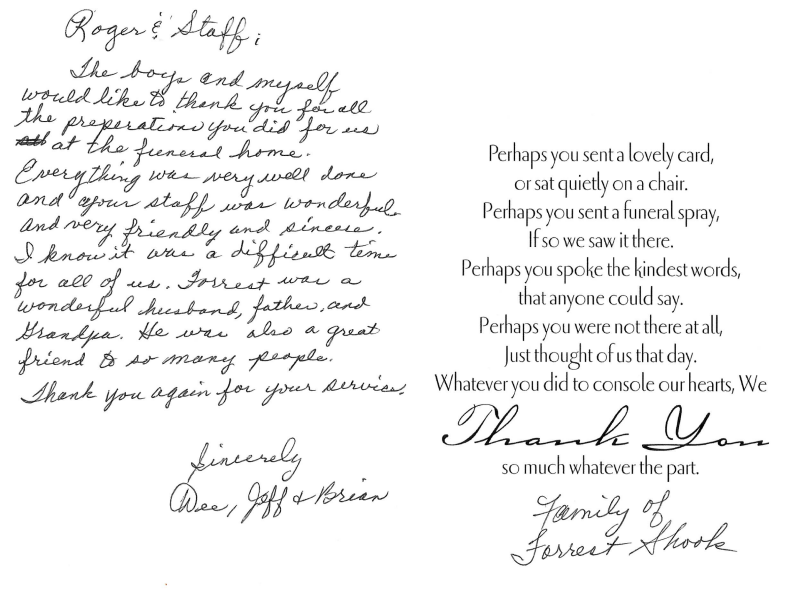 Roger & Staff;
The boys and myself
would like to thank you for all
the preperations you did for us
at the funeral home.
Everything was very well done
and your staff was wonderful
and very friendly and sincere.
I know it was a difficult time
for all of us. Forrest was a
wonderful husband, father, and
Grandpa. He was also a great
friend to so many people.
Thank you again for your service.
Sincerely
Dee, Jeff & Brian
Perhaps you sent a lovely card,
or sat quietly on a chair.
Perhaps you sent a funeral spray,
If so we saw it there.
Perhaps you spoke the kindest words,
that anyone could say.
Perhaps you were not there at all,
Just thought of us that day.
Whatever you did to console our hearts, We
Thank You
so much whatever the part.
Family of
Forrest Shook